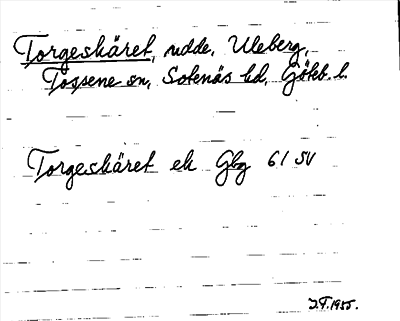 Torgeskäret, udde, Uleberg,
Tossene sn, Sotenäs hd, Göteb. l.
Torgeskäret ek Gbg 61 SV
J.T. 1955.